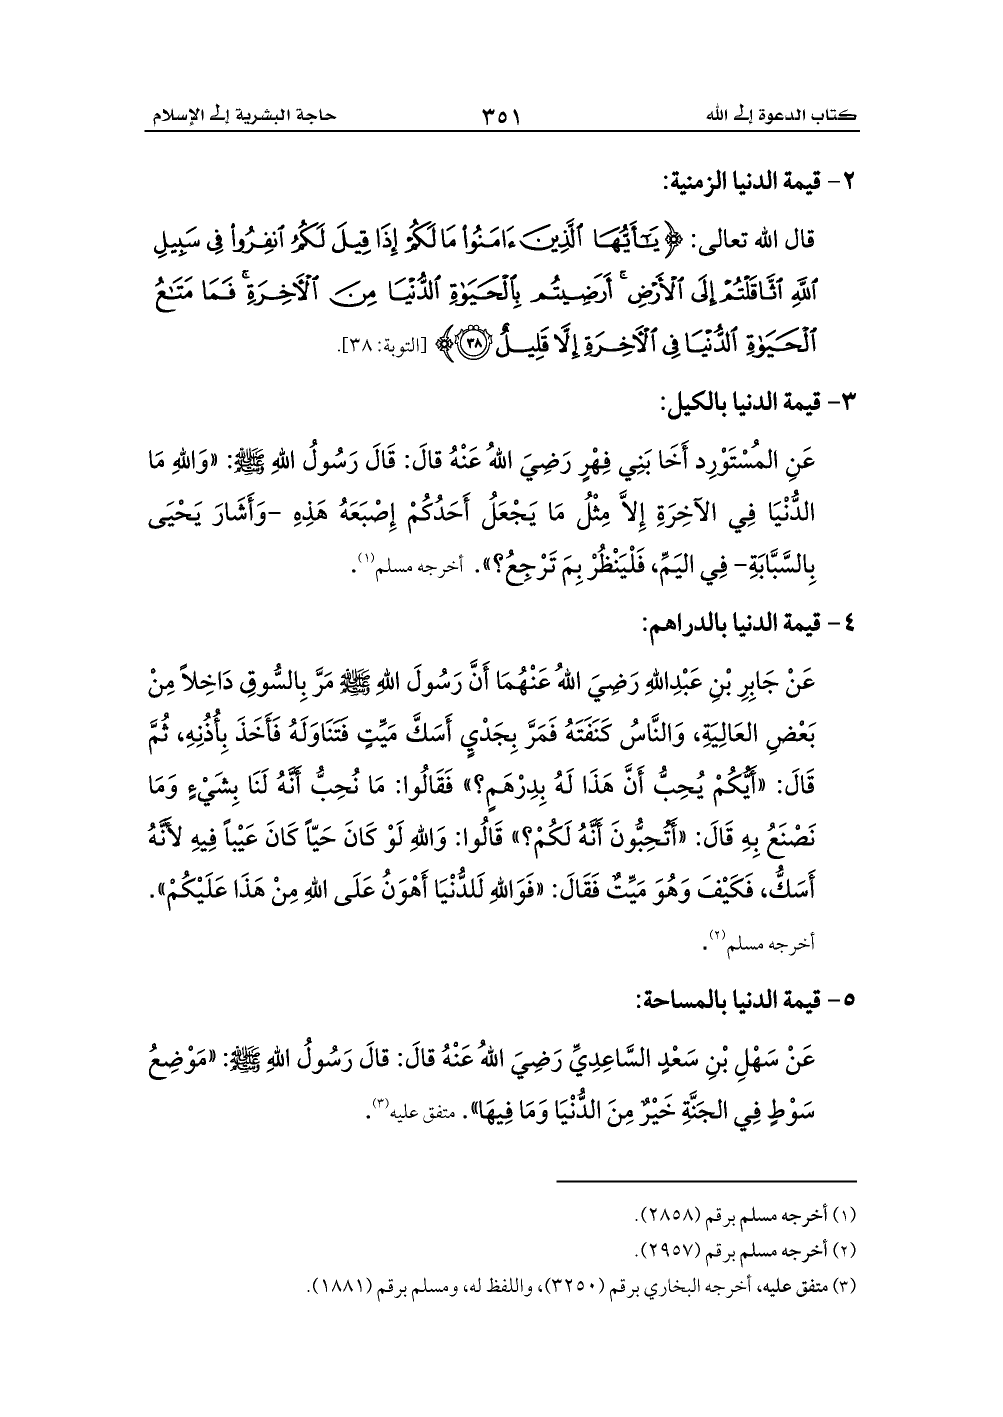 كتاب الدعوة إلى الله ٣٥١ حاجة البشرية إلى الإسلام
٢- قيمة الدنيا الزمنية:
قال الله تعالى: ﴿يَٰٓأَيُّهَا ٱلَّذِينَ ءَامَنُوا۟ مَا لَكُمْ إِذَا قِيلَ لَكُمُ ٱنفِرُوا۟ فِى سَبِيلِ
ٱللَّهِ ٱثَّاقَلْتُمْ إِلَى ٱلْأَرْضِ ۚ أَرَضِيتُم بِٱلْحَيَوٰةِ ٱلدُّنْيَا مِنَ ٱلْءَاخِرَةِ ۚ فَمَا مَتَٰعُ
ٱلْحَيَوٰةِ ٱلدُّنْيَا فِى ٱلْءَاخِرَةِ إِلَّا قَلِيلٌ ٣٨﴾ [التوبة: ٣٨].
٣- قيمة الدنيا بالكيل:
عَنِ المُسْتَوْرِدِ أَخَا بَنِي فِهْرٍ رَضِيَ اللهُ عَنْهُ قَالَ: قَالَ رَسُولُ اللهِ ﷺ: «وَاللهِ مَا
الدُّنْيَا فِي الآخِرَةِ إِلاَّ مِثْلُ مَا يَجْعَلُ أَحَدُكُمْ إِصْبَعَهُ هَذِهِ -وَأَشَارَ يَحْيَى
بِالسَّبَّابَةِ- فِي اليَمِّ، فَلْيَنْظُرْ بِمَ تَرْجِعُ؟». أخرجه مسلم(١).
٤- قيمة الدنيا بالدراهم:
عَنْ جَابِرِ بْنِ عَبْدِاللهِ رَضِيَ اللهُ عَنْهُمَا أَنَّ رَسُولَ اللهِ ﷺ مَرَّ بِالسُّوقِ دَاخِلاً مِنْ
بَعْضِ العَالِيَةِ، وَالنَّاسُ كَنَفَتَهُ فَمَرَّ بِجَدْيٍ أَسَكَّ مَيِّتٍ فَتَنَاوَلَهُ فَأَخَذَ بِأُذُنِهِ، ثُمَّ
قَالَ: «أَيُّكُمْ يُحِبُّ أَنَّ هَذَا لَهُ بِدِرْهَمٍ؟» فَقَالُوا: مَا نُحِبُّ أَنَّهُ لَنَا بِشَيْءٍ وَمَا
نَصْنَعُ بِهِ قَالَ: «أَتُحِبُّونَ أَنَّهُ لَكُمْ؟» قَالُوا: وَاللهِ لَوْ كَانَ حَيّاً كَانَ عَيْباً فِيهِ لأَنَّهُ
أَسَكُّ، فَكَيْفَ وَهُوَ مَيِّتٌ فَقَالَ: «فَوَاللهِ لَلدُّنْيَا أَهْوَنُ عَلَى اللهِ مِنْ هَذَا عَلَيْكُمْ».
أخرجه مسلم(٢).
٥- قيمة الدنيا بالمساحة:
عَنْ سَهْلِ بْنِ سَعْدٍ السَّاعِدِيِّ رَضِيَ اللهُ عَنْهُ قَالَ: قَالَ رَسُولُ اللهِ ﷺ: «مَوْضِعُ
سَوْطٍ فِي الجَنَّةِ خَيْرٌ مِنَ الدُّنْيَا وَمَا فِيهَا». متفق عليه(٣).
(١) أخرجه مسلم برقم (٢٨٥٨).
(٢) أخرجه مسلم برقم (٢٩٥٧).
(٣) متفق عليه، أخرجه البخاري برقم (٣٢٥٠)، واللفظ له، ومسلم برقم (١٨٨١).